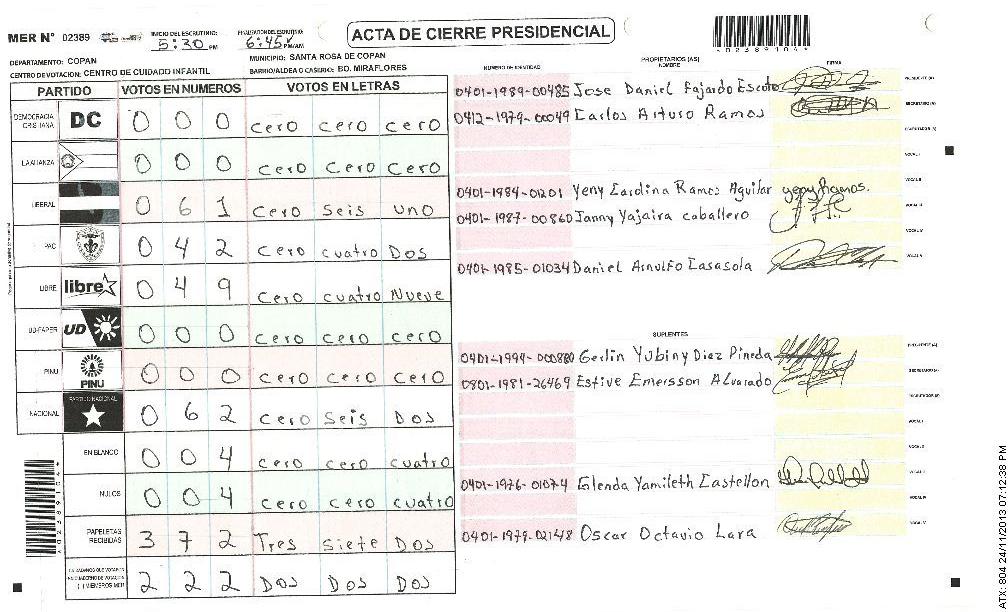 MER N° 02389
INICIO DEL ESCRUTINIO: 5:30 PM
FINALIZACION DEL ESCRUTINIO: 6:45 PM/AM
ACTA DE CIERRE PRESIDENCIAL
*02389104*
DEPARTAMENTO: COPAN
MUNICIPIO: SANTA ROSA DE COPAN
CENTRO DE VOTACION: CENTRO DE CUIDADO INFANTIL
BARRIO/ALDEA O CASERIO: BO. MIRAFLORES
PARTIDO VOTOS EN NUMEROS VOTOS EN LETRAS
DEMOCRACIA CRISTIANA DC 0 0 0 cero cero cero
LA ALIANZA 0 0 0 cero cero cero
LIBERAL 0 6 1 cero seis uno
PAC 0 4 2 cero cuatro Dos
LIBRE libre 0 4 9 cero cuatro Nueve
UD-FAPER UD 0 0 0 cero cero cero
PINU PINU 0 0 0 cero cero cero
NACIONAL PARTIDO NACIONAL 0 6 2 cero Seis Dos
EN BLANCO 0 0 4 cero cero cuatro
NULOS 0 0 4 cero cero cuatro
PAPELETAS RECIBIDAS 3 7 2 Tres Siete Dos
2 2 2 Dos Dos Dos
*02389104*
NUMERO DE IDENTIDAD
PROPIETARIOS (AS)
NOMBRE
FIRMA
0401-1989-00485 Jose Daniel Fajardo Escoto PRESIDENTE (A)
0412-1979-00049 Carlos Arturo Ramos SECRETARIO (A)
ESCRUTADOR (A)
VOCAL I
VOCAL II
0401-1984-01201 Yeny Carolina Ramos Aguilar yeny Ramos. VOCAL III
0401-1987-00860 Janny Yajaira caballero VOCAL IV
0401-1985-01034 Daniel Arnulfo Casasola VOCAL V
SUPLENTES
0401-1994-000880 Gerlin Yubiny Diaz Pineda PRESIDENTE (A)
0801-1981-26469 Estive Emersson Alvarado SECRETARIO (A)
ESCRUTADOR (A)
VOCAL I
VOCAL II
0401-1976-01074 Glenda Yamileth Castellon VOCAL III
VOCAL IV
0401-1979-02148 Oscar Octavio Lara VOCAL V
ATX: 804 24/11/2013 07:12:38 PM